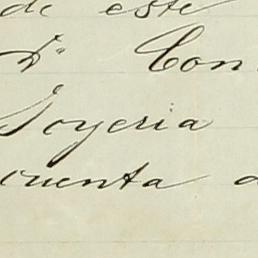 de este
Dª Con
Goyeria
cuenta a